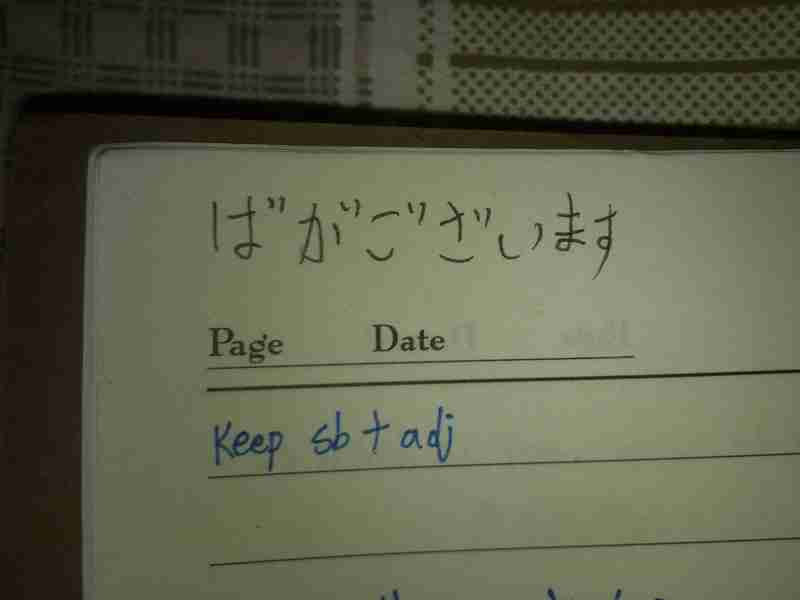 ばがございます
Page Date
Keep sb + adj